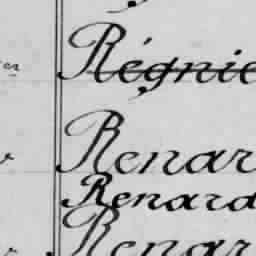 Régnie
Renar
Renard
Renar